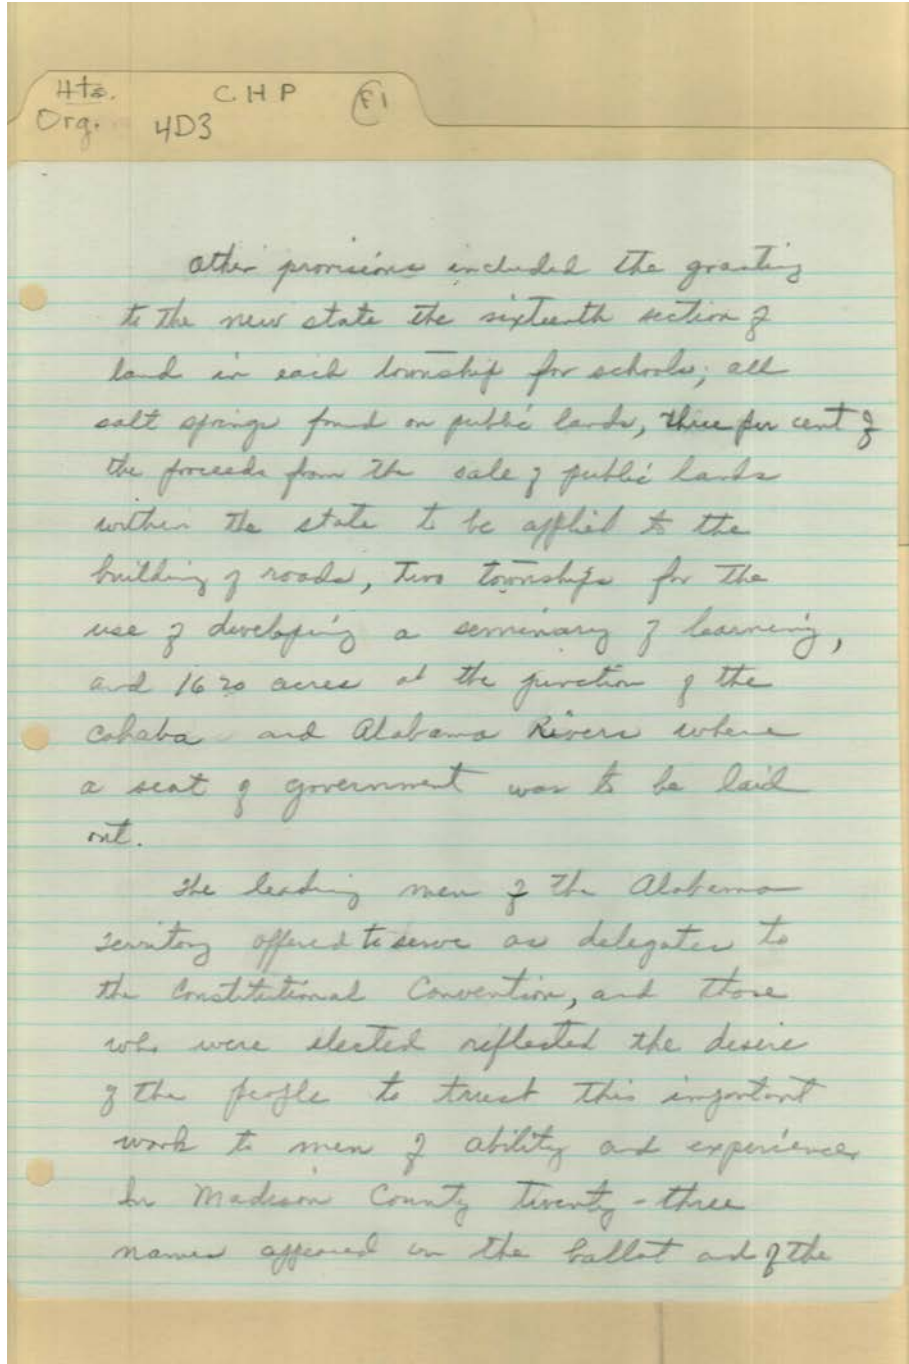 Hts. CHP F1
Org. 4D3
Other provisions included the granting
to the new state the sixteenth section of
land in each township for schools; all
salt springs found on public lands, three per cent of
the proceeds from the sale of public lands
within the state to be applied to the
building of roads, two townships for the
use of developing a seminary of learning,
and 1620 acres at the junction of the
Cahaba and Alabama Rivers where
a seat of government was to be laid
out.
The leading men of the Alabama
Territory offered to serve as delegates to
the Constitutional Convention, and those
who were elected reflected the desire
of the people to trust this important
work to men of ability and experience.
In Madison County twenty-three
names appeared on the ballot and of the